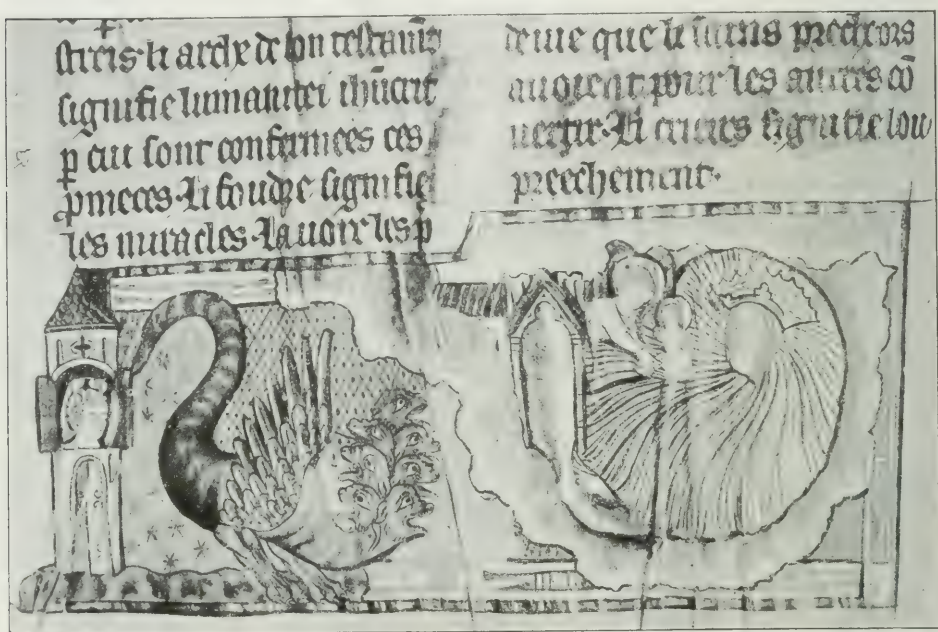 li arche de son testam̄t
signifie lumanitei ihūcrit
ꝑ cui sont confermees ces
ꝓmeces. Li foudre signifie
les miracles. La uoire les ꝑ
que li sains precheors
auoient pour les autres cō
uertir. Li crieurs signifie lou
preechement.